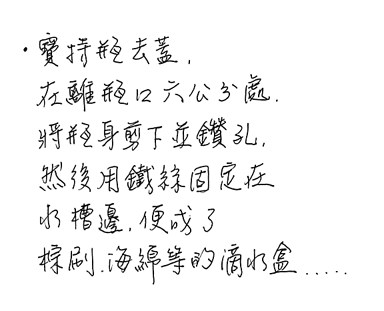 ·寶特瓶去蓋,
在離瓶口六公分處.
將瓶身剪下並鑽孔,
然後用鐵絲固定在
水槽邊,便成了
棕刷.海綿等的滴水盒.....